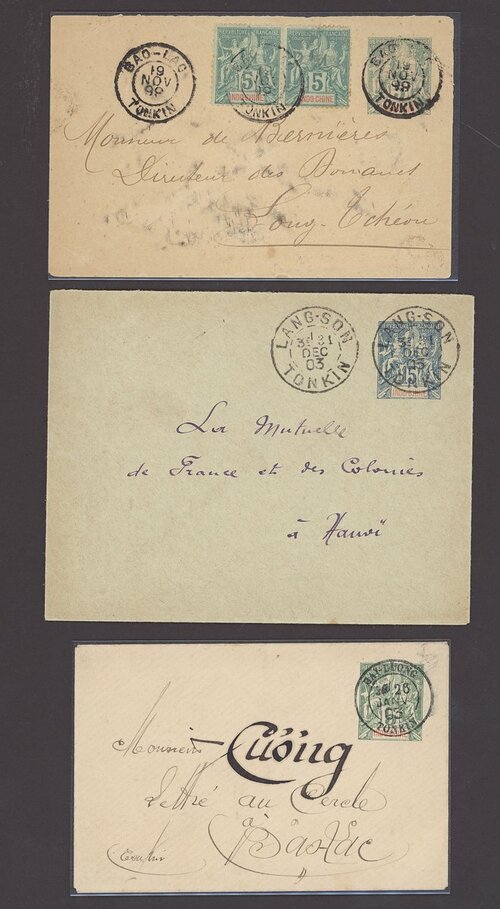 BAO-LAC
19
NOV
98
TONKIN
RÉPUBLIQUE FRANÇAISE
5
INDO-CHINE
RÉPUBLIQUE FRANÇAISE
5
INDO-CHINE
TONKIN
BAO-LAC
19
NOV
98
TONKIN
Monsieur de Bernières
Directeur des Douanes
Long-Tchéou
LANG-SON
31
DEC
03
TONKIN
RÉPUBLIQUE FRANÇAISE
15
INDO-CHINE
LANG-SON
31
DEC
03
TONKIN
La Mutuelle
de France et des Colonies
à Hanoï
26
JANV
03
TONKIN
Monsieur Cuông
Lettré au Cercle
à Bao-Lac
Tonkin